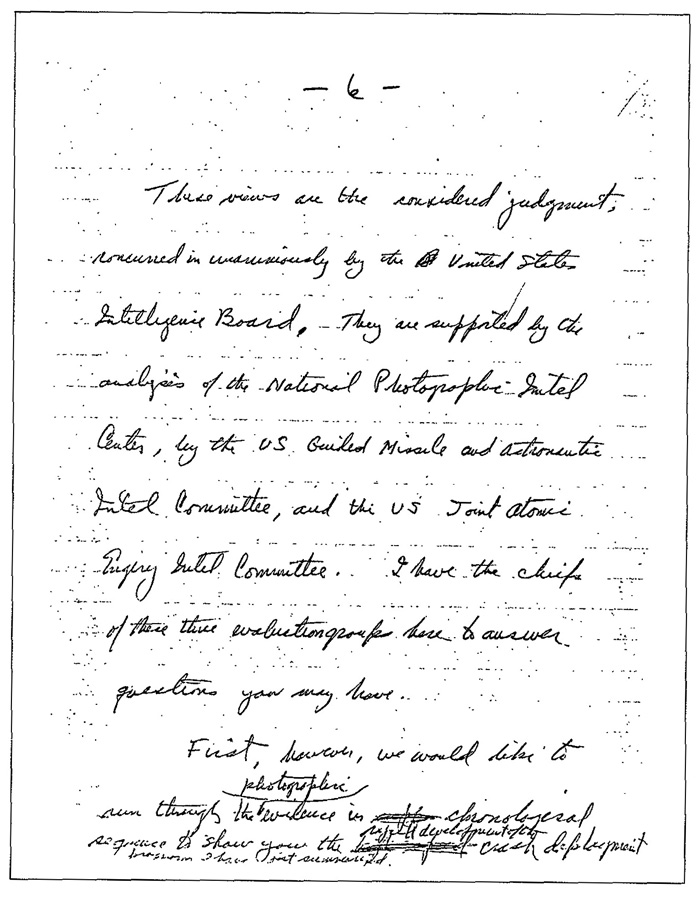 - 6 -
These views are the considered judgment,
concurred in unanimously by the United States
Intelligence Board. They are supported by the
analysis of the National Photographic Intel
Center, by the US Guided Missile and Astronautic
Intel Committee, and the US Joint Atomic
Engery Intel Committee. I have the chiefs
of these three evaluation groups here to answer
questions you may have.
First, however, we would like to
photographic
run through the evidence in chronological
rapid development of the
sequence to show you the crash deployment
program I have just summarized.